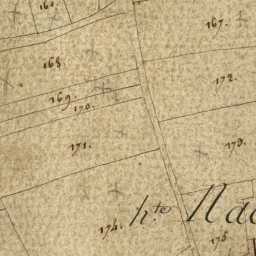 160.
167.
168
172.
169.
170.
171.
173.
174.
h.te Na
175